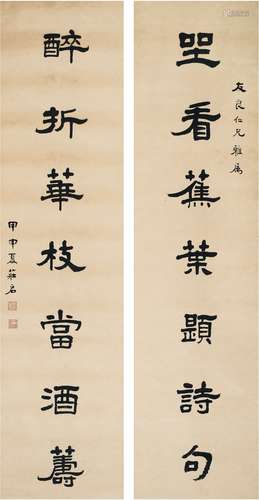 友良仁兄雅属
坐看蕉葉題詩句
醉折華枝當酒籌
甲申夏莊